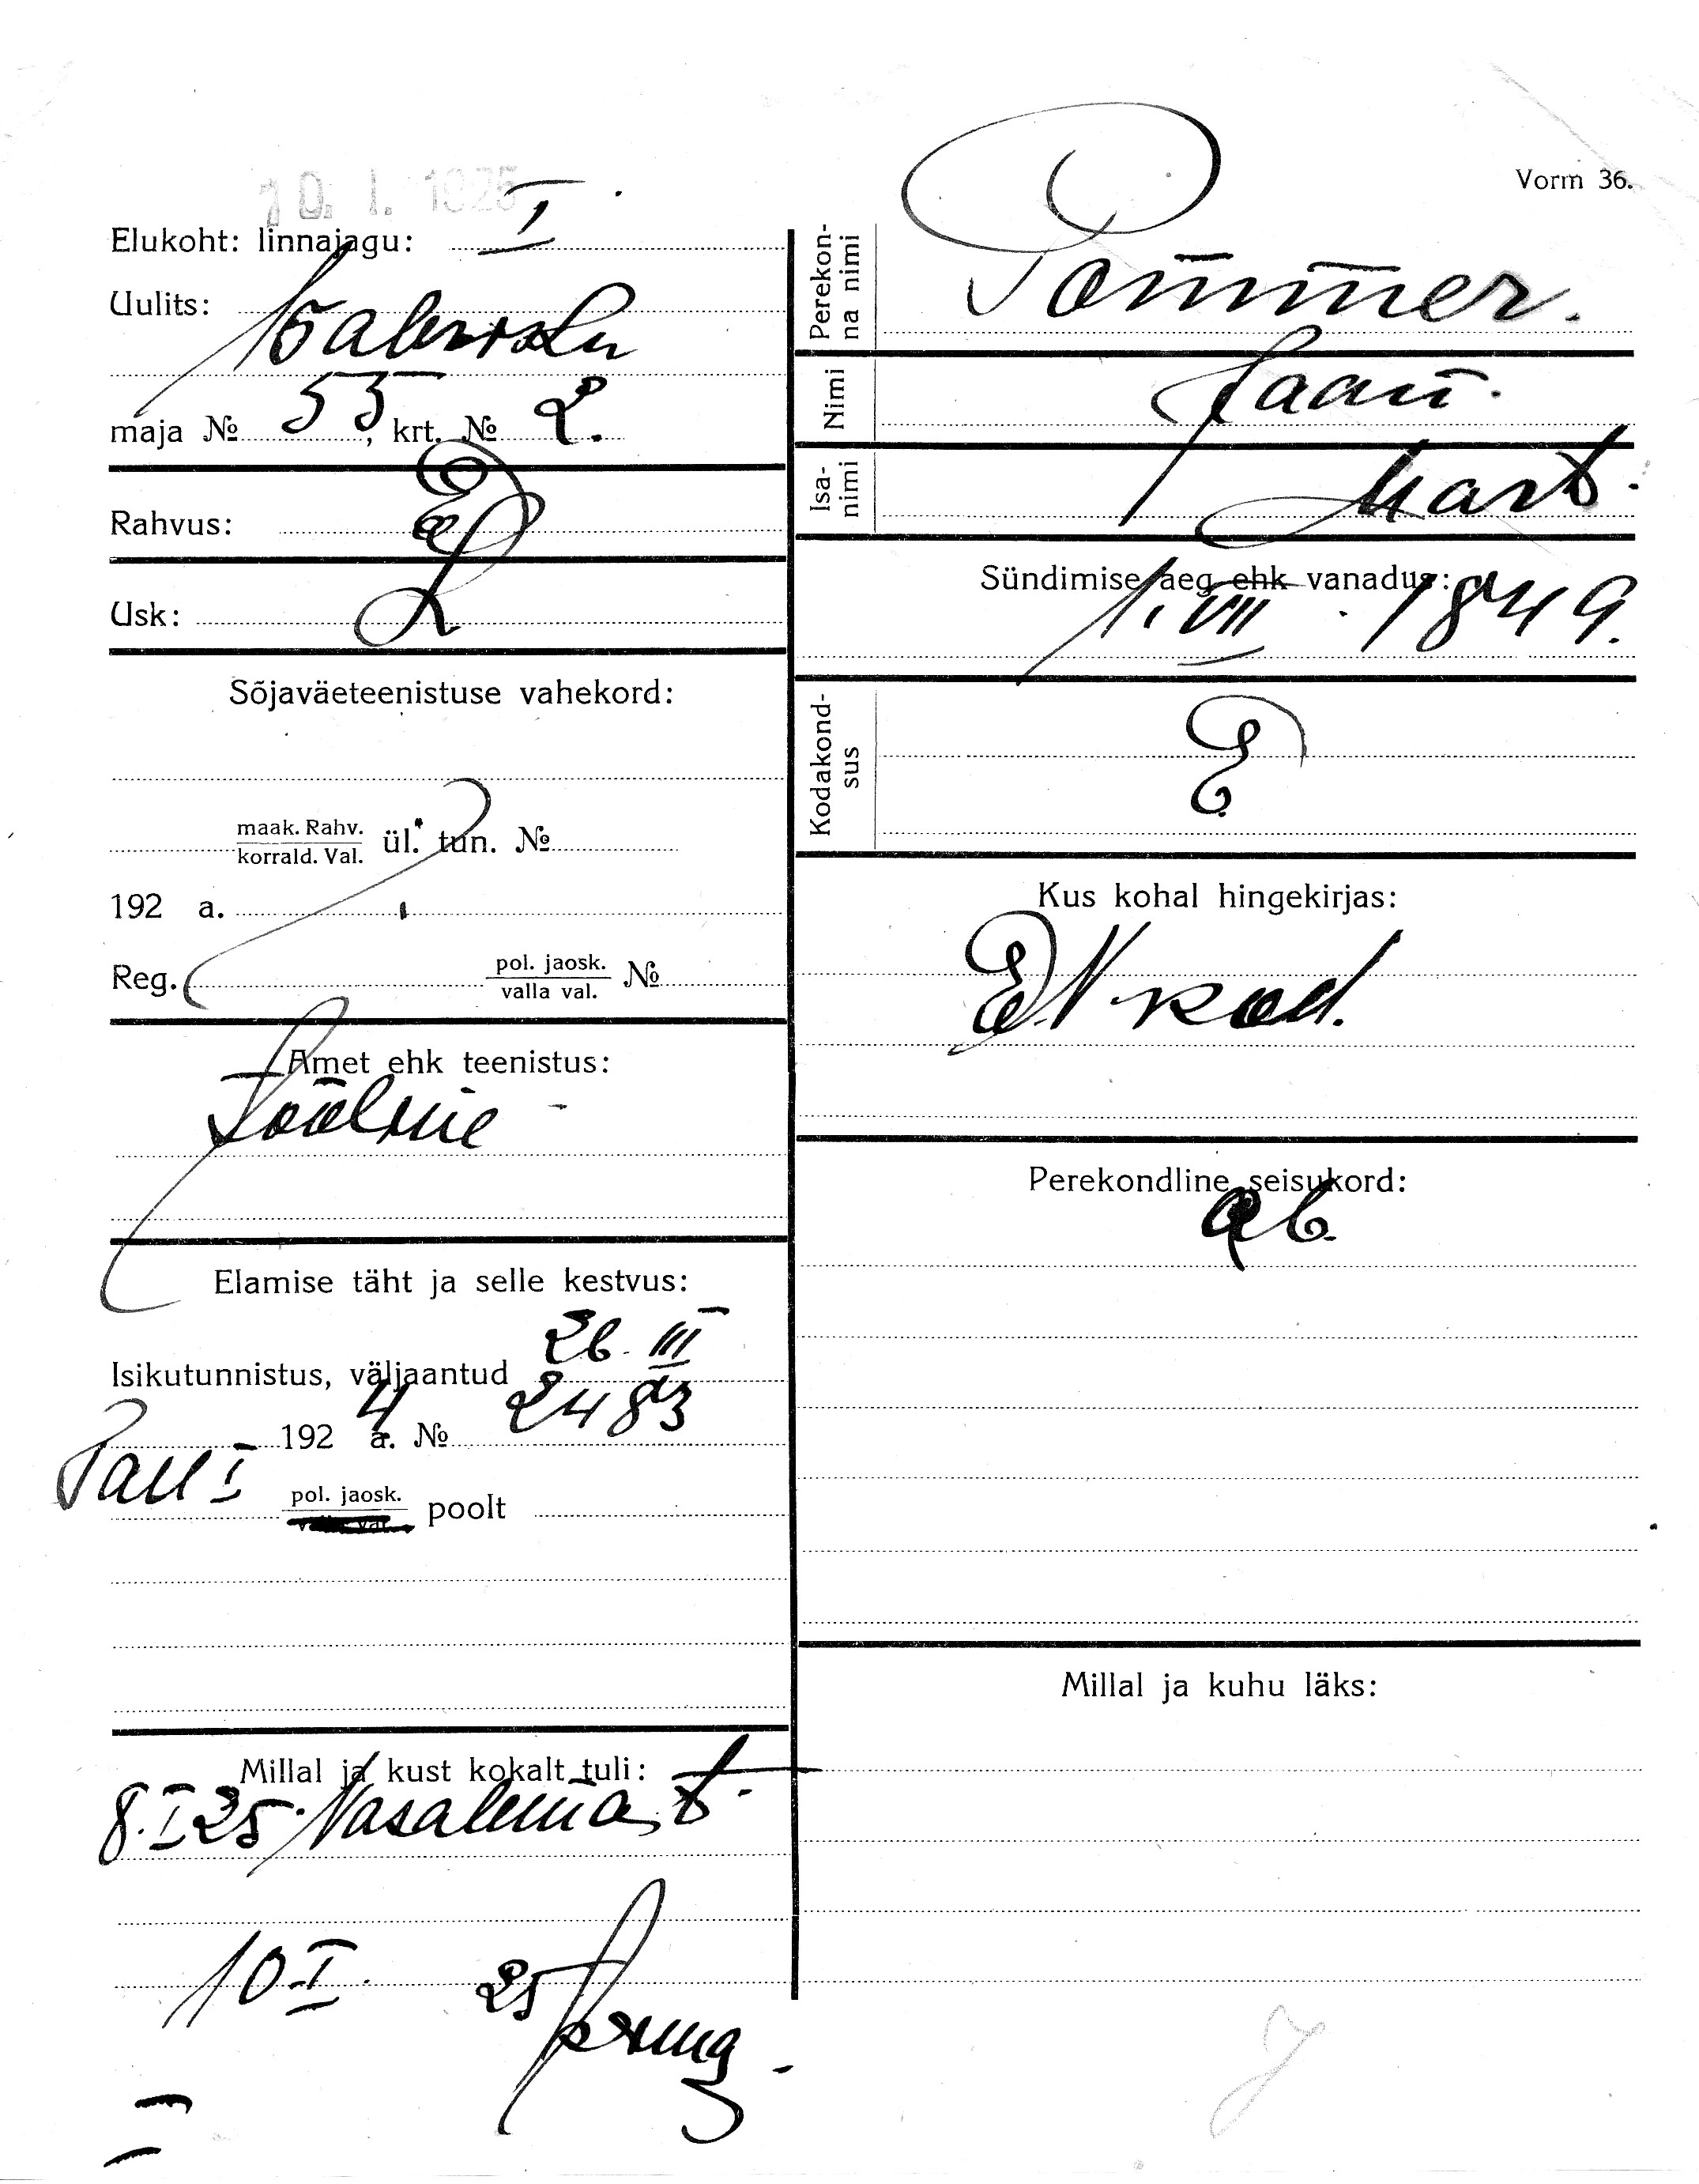 10. I. 1925
Vorm 36.
Elukoht: linnajagu: I
Uulits:
maja № 55, krt. № 2.
Rahvus: E
Usk: L
Sõjaväeteenistuse vahekord:
maak. Rahv.
korrald. Val. ül. tun. №
192 a.
Reg. pol. jaosk. №
valla val.
Amet ehk teenistus:
Tööline
Elamise täht ja selle kestvus:
26. III
Isikutunnistus, väljaantud
1924 a. № 2483
Tall I pol. jaosk. poolt
valla val.
Millal ja kust kokalt tuli:
8. I 25. Vasalema t.
10 I. 25
Perekonna nimi Pommer.
Nimi Jaan.
Isanimi Mart.
Sündimise aeg ehk vanadus:
1. VII. 1849.
Kodakondsus E
Kus kohal hingekirjas:
E.V. kod.
Perekondline seisukord:
ab.
Millal ja kuhu läks: